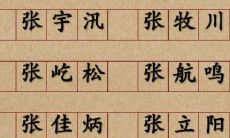 张宇汛 张牧川
张屹松 张航鸣
张佳炳 张立阳